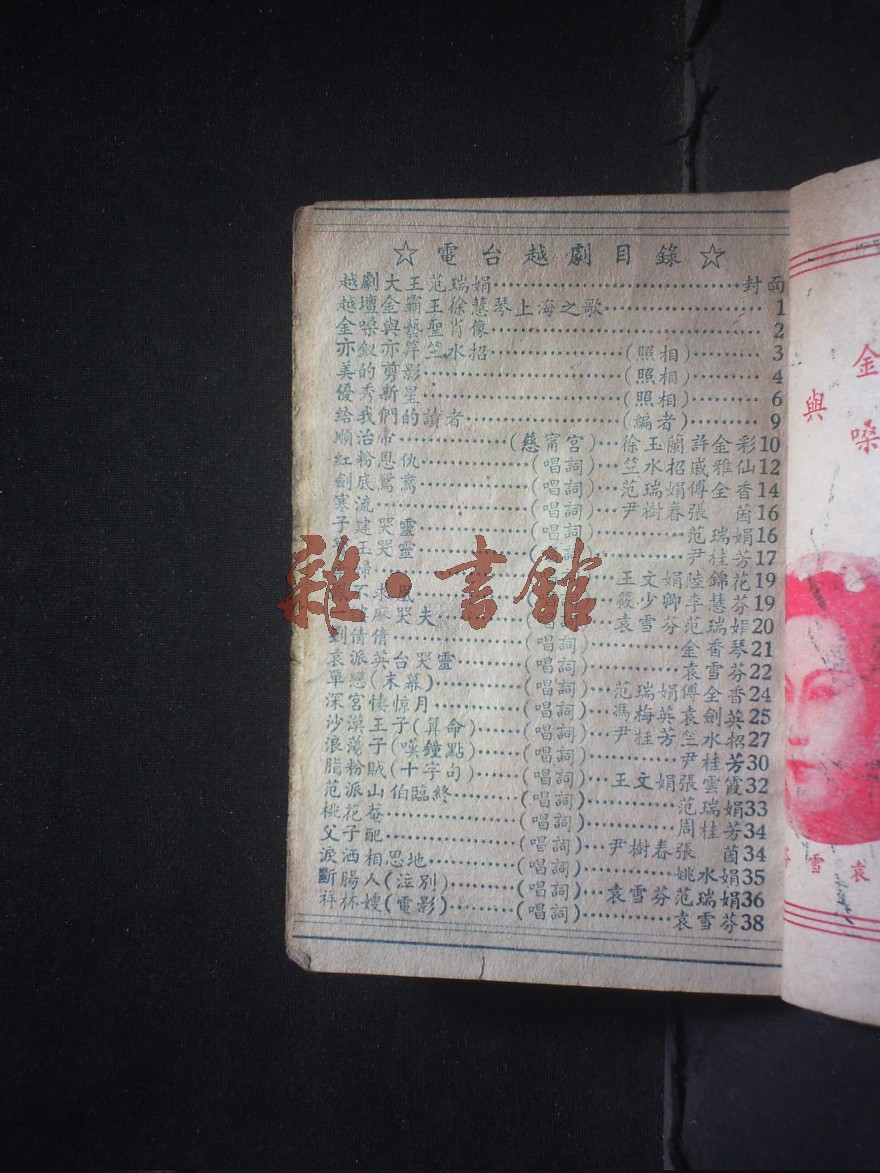 ☆電台越劇目錄☆
越劇大王范瑞娟……封面
越壇金霸王徐慧琴上海之歌……1
金嗓與藝聖肖像……2
亦釵亦弁竺水招……(照相)……3
美的剪影……(照相)……4
優秀新星……(照相)……6
給我們的讀者……(編者)……9
順治帝……(慈甯宮)…徐玉蘭許金彩10
紅粉恩仇……(唱詞)…竺水招戚雅仙12
劍底鴛鴦……(唱詞)…范瑞娟傅全香14
寒流……(唱詞)…尹樹春張茵16
子建哭靈……(唱詞)……范瑞娟16
王哭靈……詞)……尹桂芳17
歸……王文娟陸錦花19
不求……筱少卿李慧芬19
麻哭夫……詞…袁雪芬范瑞娟20
劉倩倩……(唱詞)……金香琴21
袁派英台哭靈……(唱詞)……袁雪芬22
單戀(末幕)……(唱詞)…范瑞娟傅全香24
深宮悽惊月……(唱詞)…馮梅英袁劍英25
沙漠王子(算命)……(唱詞)…尹桂芳竺水招27
浪蕩子(嘆鐘點)……(唱詞)……尹桂芳30
脂粉賊(十字句)……(唱詞)…王文娟張雲霞32
范派山伯臨終……(唱詞)……范瑞娟33
桃花菴……(唱詞)……周桂芳34
父子配……(唱詞)…尹樹春張茵34
淚洒相思地……(唱詞)……姚水娟35
斷腸人(泣別)……(唱詞)…袁雪芬范瑞娟36
祥林嫂(電影)……(唱詞)……袁雪芬38
雜·書館
金嗓
與
袁雪芬